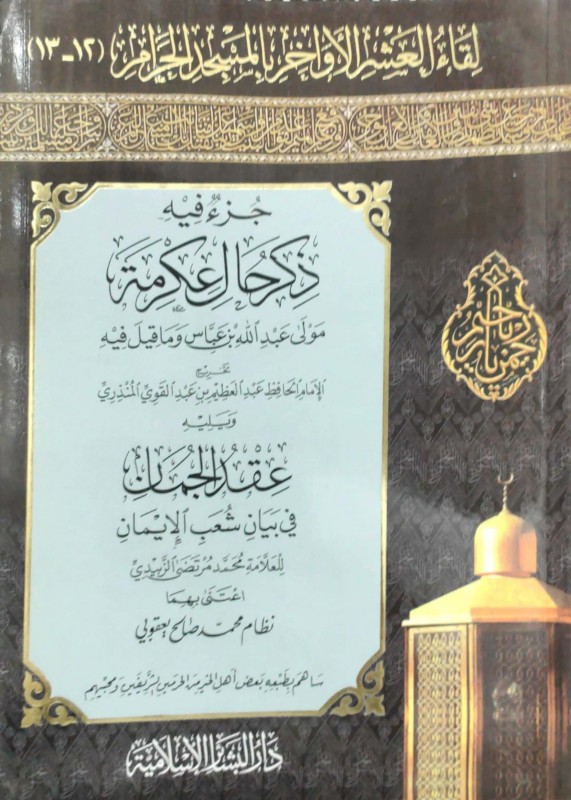 لِقَاءُ العَشْرِ الأَوَاخِرِ بِالمَسْجِدِ الحَرَامِ (١٢-١٣)
جُزْءٌ فِيْهِ
ذِكْرُ حَالِ عِكْرِمَةَ
مَوْلَىٰ عَبْدِ اللهِ بْنِ عَبَّاسٍ وَمَا قِيْلَ فِيْهِ
تخريج
الإِمَامِ الحَافِظِ عَبْدِ العَظِيْمِ بْنِ عَبْدِ القَوِيِّ المُنْذِرِيِّ
وَيَلِيْهِ
عِقْدُ الجُمَانِ
فِي بَيَانِ شُعَبِ الإِيْمَانِ
لِلْعَلَّامَةِ مُحَمَّدْ مُرْتَضَىٰ الزَّبِيْدِيِّ
اعْتَنَىٰ بِهِمَا
نظام محمد صالح يعقوبي
سَاهَمَ بِطَبْعِهِ بَعْضُ أَهْلِ الخَيْرِ مِنَ الحَرَمَيْنِ الشَّرِيْفَيْنِ وَمُحِبِّيْهِم
دَارُ البَشَائِرِ الإِسْلَامِيَّة